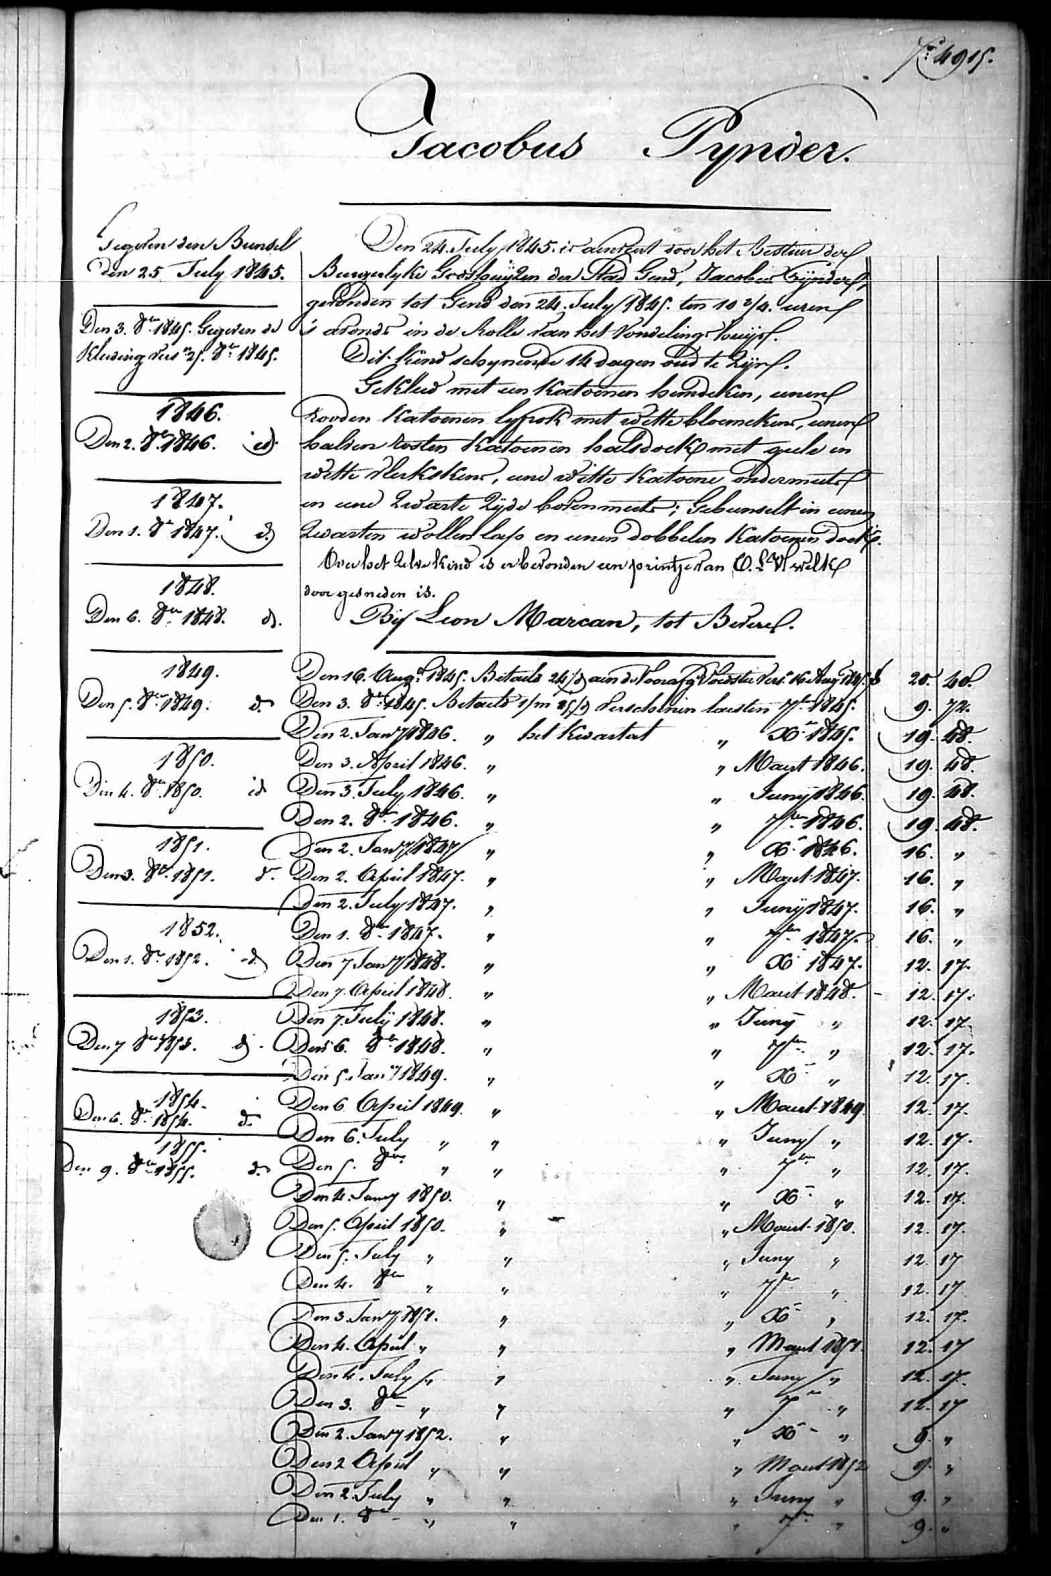 4915.
Jacobus Pynder.
Gegeven den Bunsel
den 25 July 1845.
Den 3. 8re 1845. Gegeven de
Kleeding
1846.
Den 2. 8re 1846. id
1847.
Den 1. 8re 1847. id
1848.
Den 6. 8re 1848. id.
1849.
Den 5. 8re 1849. id.
1850.
Den 4. 8re 1850. id
1851.
Den 3. 8re 1851. id.
1852.
Den 1. 8re 1852. id
1853.
Den 7 8re 1853. id.
1854.
Den 6. 8re 1854. id.
1855.
Den 9. 8re 1855. id
Den 24. July 1845. is door het Bestier der
Burgerlyke Godshuyzen der Stad Gend, Jacobus Pynder,
gevonden tot Gend den 24. July 1845. ten 10 3/4 uren
's avonds in de Rolle van het Vondelinge huys.
Dit kind schynende 14 dagen oud te zyn.
Gekleed met een Katoenen hemdeken, eenen
rooden Katoenen lyfrok met witte bloemekens, eenen
halven rosten Katoenen halsdoek met geele en
witte vlerkskens, eene witte Katoene ondermuts
en eene zwarte zyde bovenmuts; Gebunselt in eenen
zwarten wollen lap en eenen dobbelen Katoenen doek.
Over het zelve kind is er bevonden een printje van O.L.V. welk
door gesneden is.
By Leon Marcan, tot Beveren.
Den 16. Augt 1845. Betaeld 16 Aug 1845. 20. 40.
Den 3. 8re 1845. Betaeld verschenen laesten 7re 1845. 9. 72.
Den 2. Jany 1846. " het kwartael " Xre 1845. 19. 48.
Den 3. April 1846. " " Maert 1846. 19. 48.
Den 3. July 1846. " " Juny 1846. 19. 48.
Den 2. 8re 1846. " " 7re 1846. 19. 48.
Den 2. Jany 1847 " " Xre 1846. 16. "
Den 2. April 1847. " " Maert 1847. 16. "
Den 2. July 1847. " " Juny 1847. 16. "
Den 1. 8re 1847. " " 7re 1847. 16. "
Den 7 Jany 1848. " " Xre 1847. 12. 17.
Den 7. April 1848. " " Maert 1848. 12. 17.
Den 7. July 1848. " " Juny " 12. 17.
Den 6. 8re 1848. " " 7re " 12. 17.
Den 5. Jany 1849. " " Xre " 12. 17.
Den 6 April 1849. " " Maert 1849 12. 17.
Den 6. July " " " Juny " 12. 17.
Den 5. 8re " " " 7re " 12. 17.
Den 4. Jany 1850. " " Xre " 12. 17.
Den 5. April 1850. " " Maert 1850. 12. 17.
Den 5. July " " " Juny " 12. 17
Den 4. 8re " " " 7re " 12. 17
Den 3. Jany 1851. " " Xre " 12. 17.
Den 4. April " " " Maert 1851. 12. 17
Den 4. July " " " Juny " 12. 17.
Den 3. 8re " " " 7re " 12. 17
Den 2. Jany 1852. " " Xre " 9. "
Den 2 April " " " Maert 1852 9. "
Den 2. July " " " Juny " 9. "
Den 1. 8re " " " 7re " 9. "